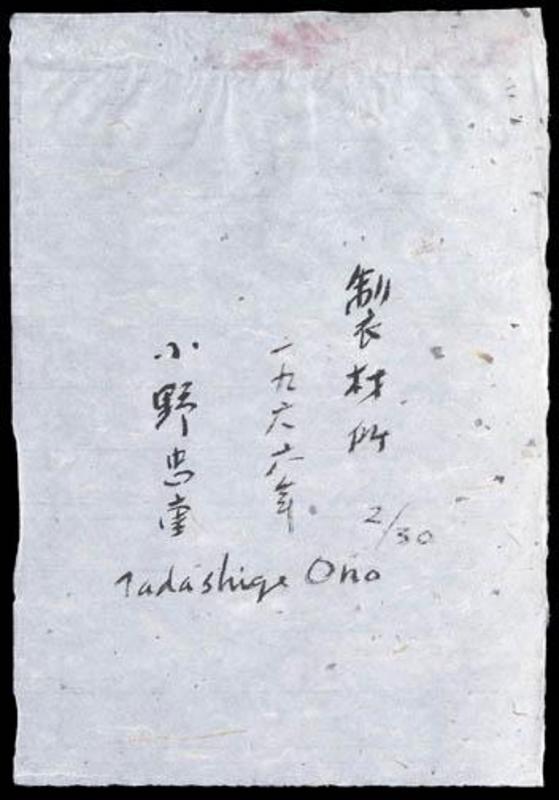 製材所
一九六六年
小野忠重
2/30
Tadashige Ono